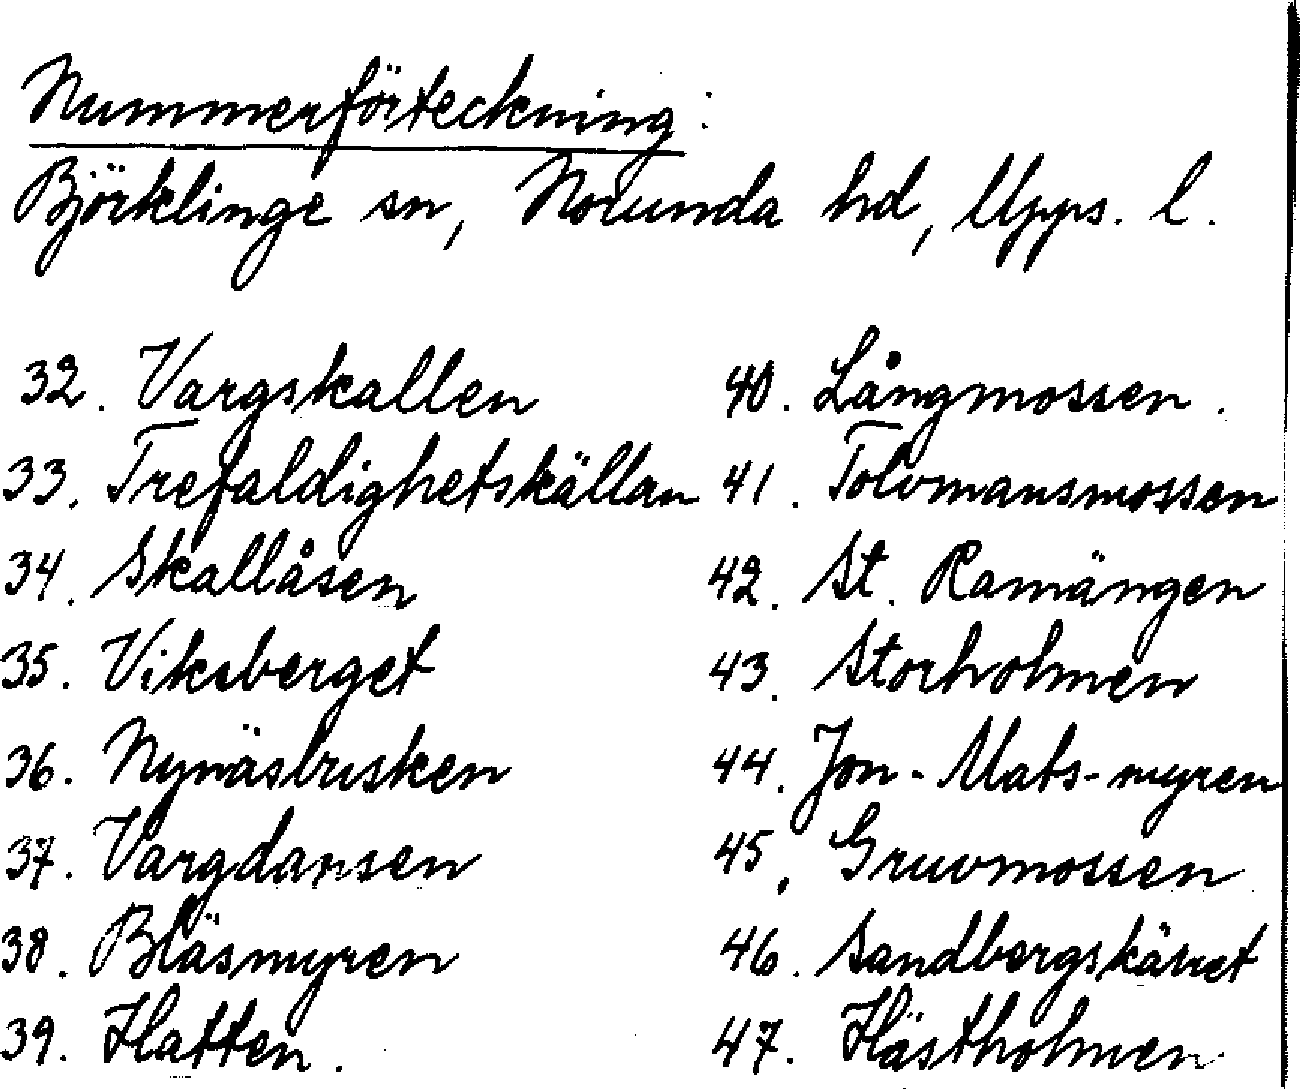 Nummerförteckning:
Björklinge sn, Norunda hd, Upps. l.
32. Vargskallen
33. Trefaldighetskällan
34. Skallåsen
35. Viksberget
36. Nynäsbrisken
37. Vargdansen
38. Blåsmyren
39. Hatten.
40. Långmossen.
41. Tolvmansmossen
42. St. Ramängen
43. Storholmen
44. Jon-Mats-myren
45. Gruvmossen
46. Sandbergskärret
47. Hästholmen